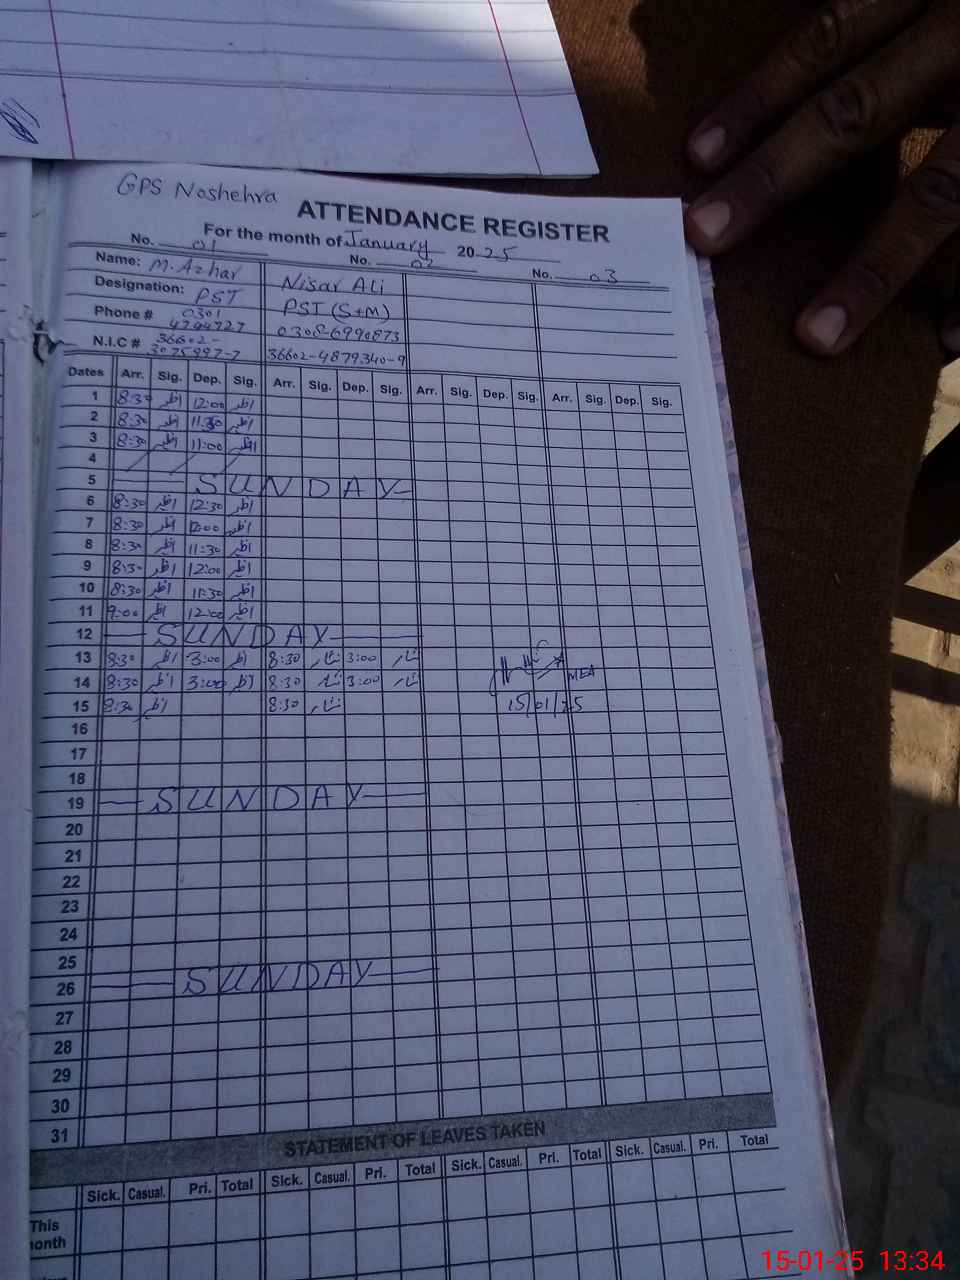 GPS Noshehra
ATTENDANCE REGISTER
For the month of January 2025
No. 01 No. 02 No. 03
Name: M. Azhar Nisar Ali
Designation: PST PST (S+M)
Phone # 0301 4744727 0308-6990873
N.I.C # 36602-3075997-7 36602-4879340-9
Dates Arr. Sig. Dep. Sig. Arr. Sig. Dep. Sig. Arr. Sig. Dep. Sig. Arr. Sig. Dep. Sig.
1 8:30 اظہر 12:00 اظہر
2 8:30 اظہر 11:30 اظہر
3 8:30 اظہر 11:00 اظہر
4
5 SUNDAY
6 8:30 اظہر 12:30 اظہر
7 8:30 اظہر 12:00 اظہر
8 8:30 اظہر 11:30 اظہر
9 8:30 اظہر 12:00 اظہر
10 8:30 اظہر 11:30 اظہر
11 9:00 اظہر 12:00 اظہر
12 SUNDAY
13 8:30 اظہر 3:00 اظہر 8:30 نثار 3:00 نثار
14 8:30 اظہر 3:00 اظہر 8:30 نثار 3:00 نثار MEA
15 8:30 اظہر 8:30 نثار 15/01/25
16
17
18
19 SUNDAY
20
21
22
23
24
25
26 SUNDAY
27
28
29
30
31
STATEMENT OF LEAVES TAKEN
Sick. Casual. Pri. Total Sick. Casual. Pri. Total Sick. Casual. Pri. Total Sick. Casual. Pri. Total
This
month
15-01-25 13:34